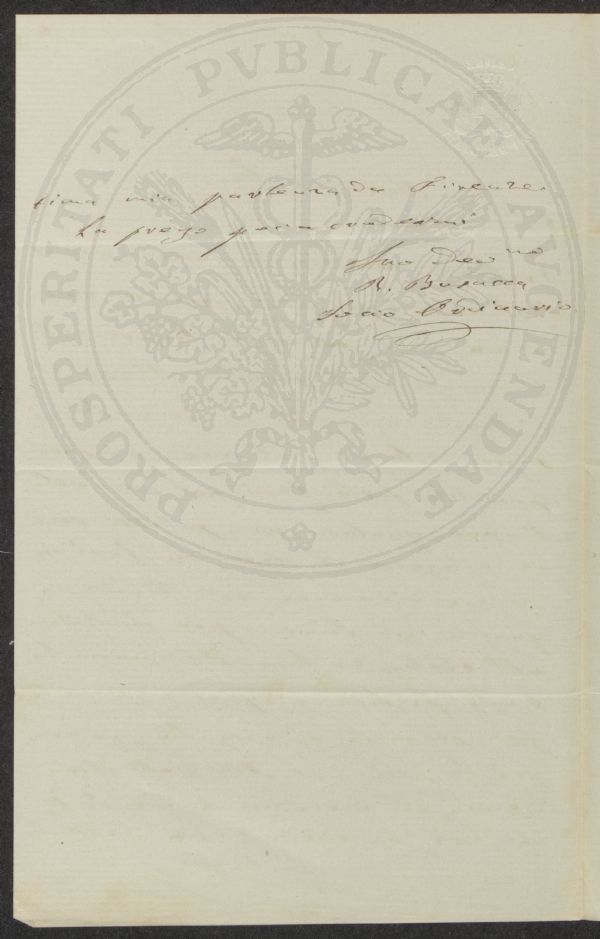 PROSPERITATI PVBLICAE AVGENDAE
tima mia partenza da Firenze.
La prego poi a credermi
Suo Dev.mo
R. Busacca
Socio Ordinario